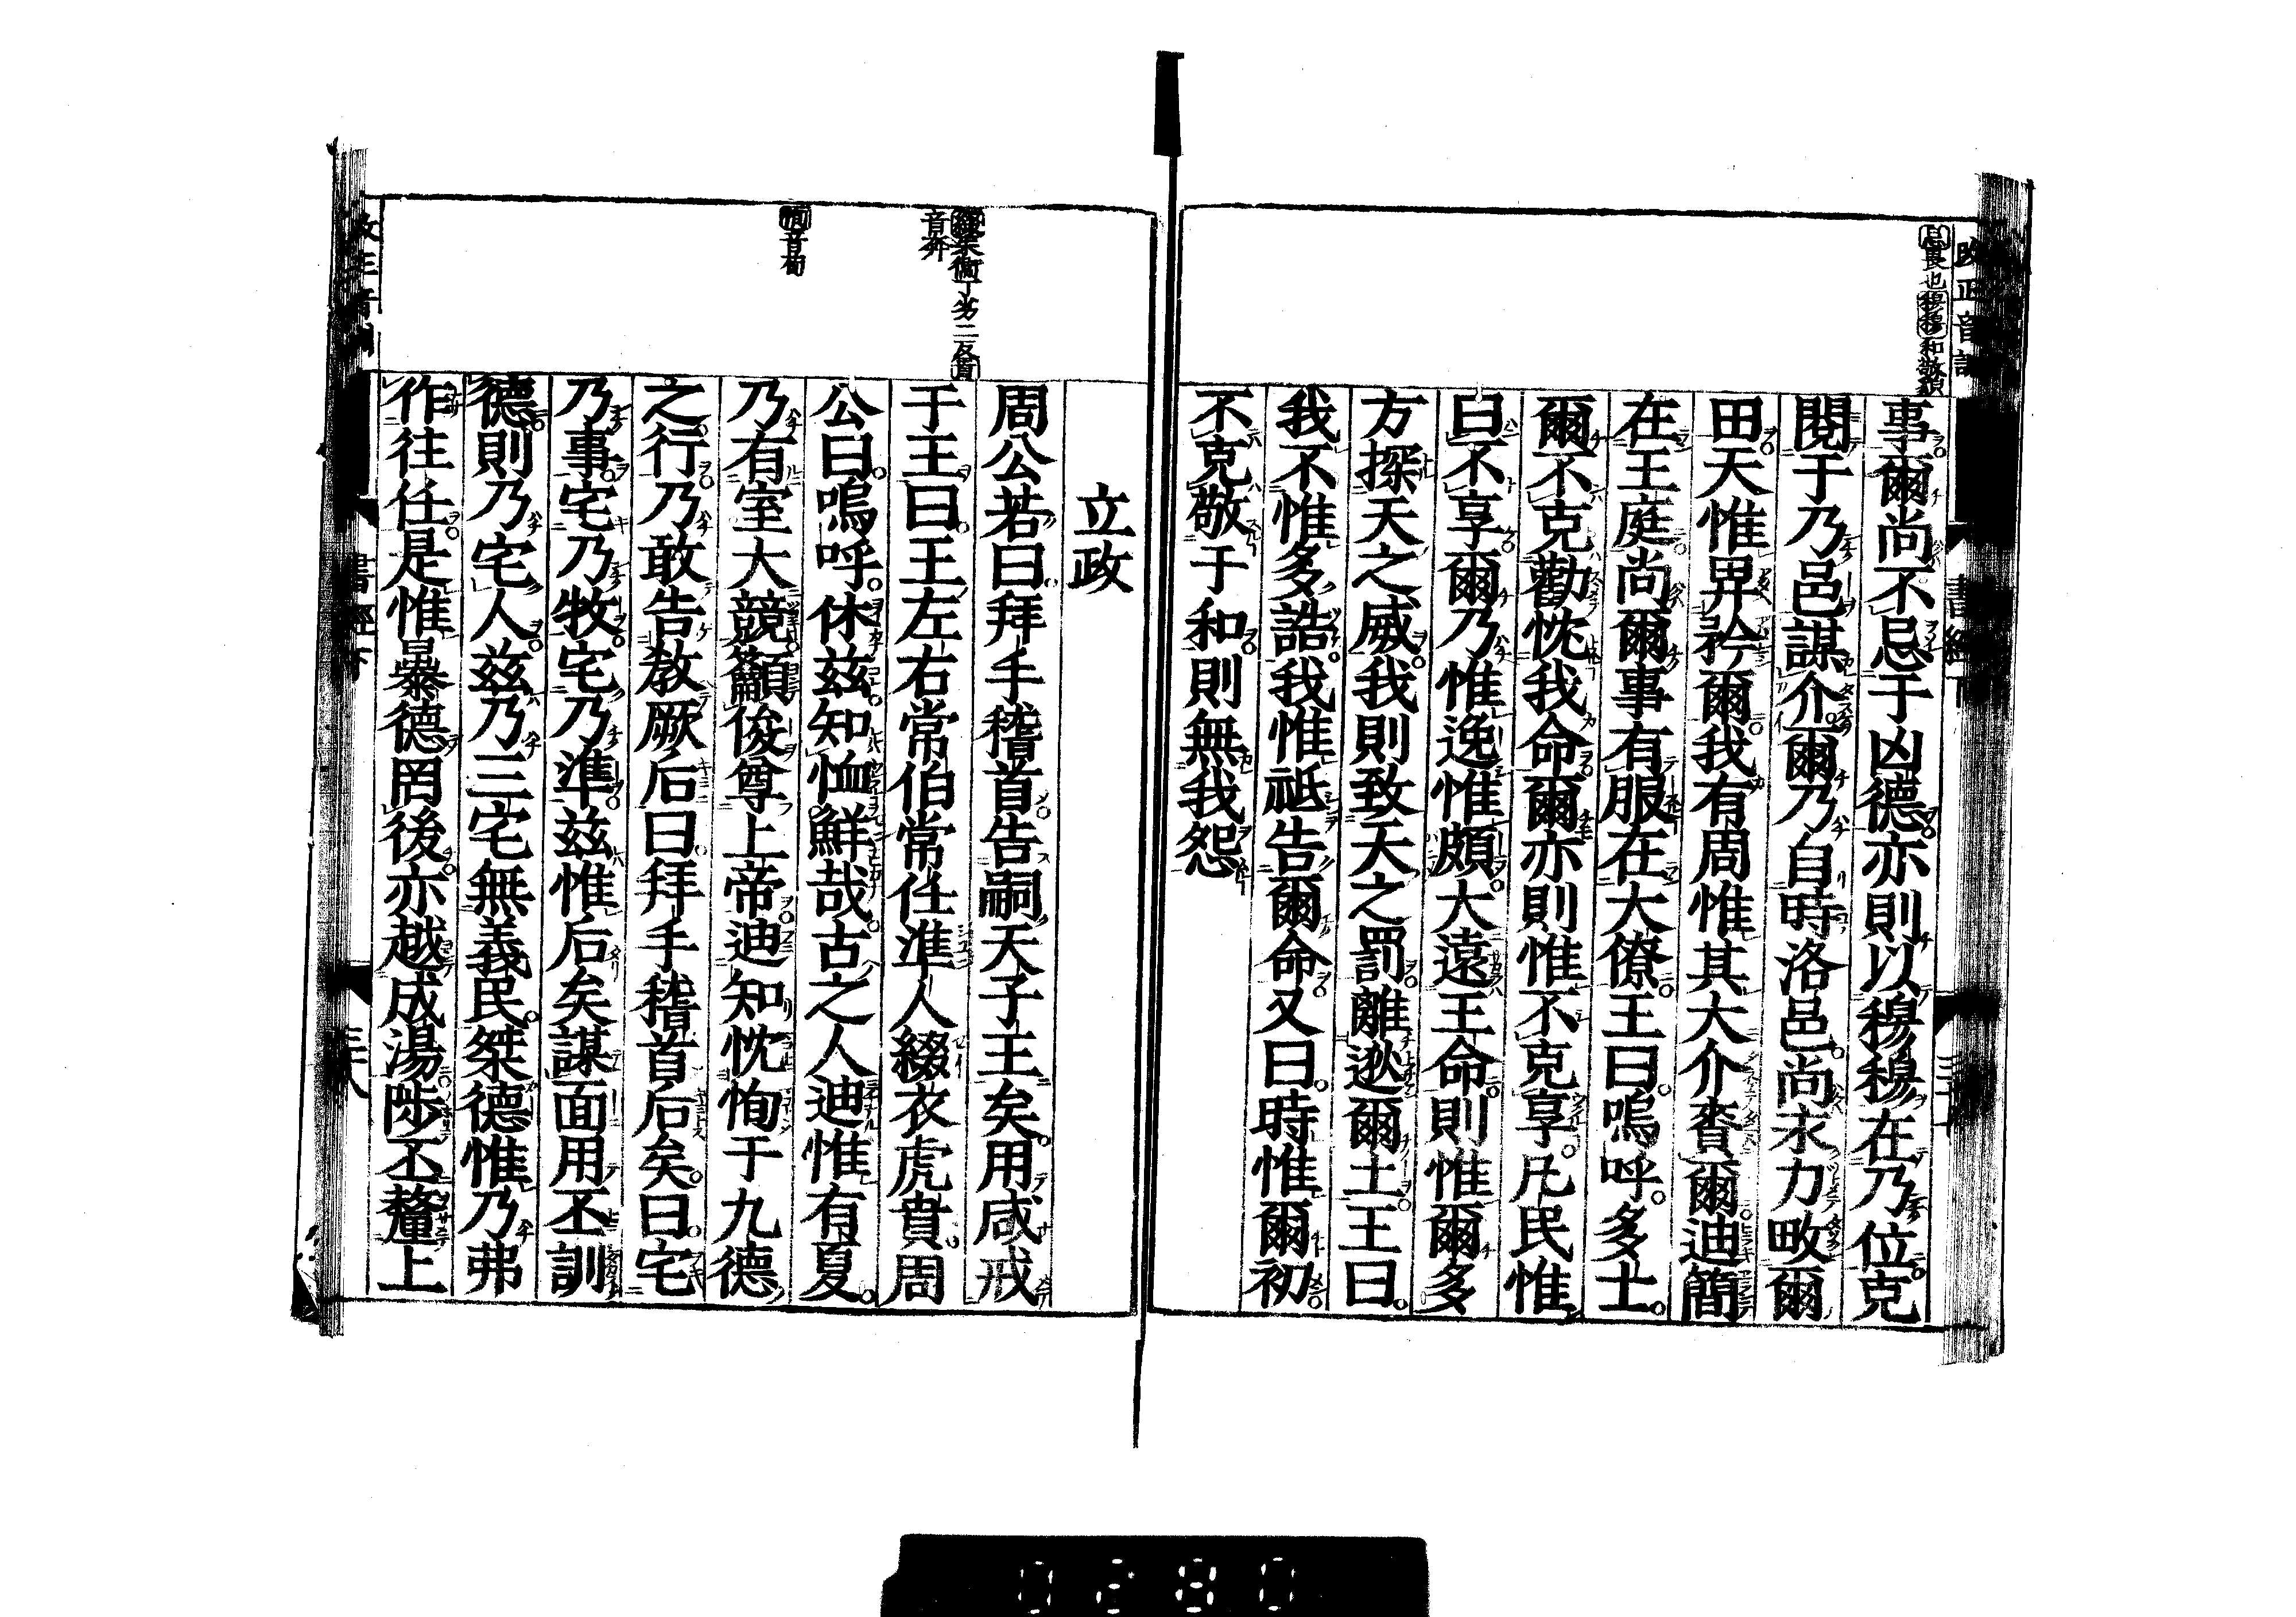 改正音訓
忌畏也穆穆和敬貌
事爾尚不忌于凶德亦則以穆穆在乃位克
閱于乃邑謀介爾乃自時洛邑尚永力畋爾
田天惟畀矜爾我有周惟其大介賚爾迪簡
在王庭尚爾事有服在大僚王曰嗚呼多士
爾不克勸忱我命爾亦則惟不克享凡民惟
曰不享爾乃惟逸惟頗大遠王命則惟爾多
方探天之威我則致天之罰離逖爾土王曰
我不惟多誥我惟祗告爾命又曰時惟爾初
不克敬于和則無我怨
書經下
立政
綴朱衛丁劣二反賁
音奔
恂音荀
周公若曰拜手稽首告嗣天子王矣用咸戒
于王曰王左右常伯常任準人綴衣虎賁周
公曰嗚呼休茲知恤鮮哉古之人迪惟有夏
乃有室大競籲俊尊上帝迪知忱恂于九德
之行乃敢告敎厥后曰拜手稽首后矣曰宅
乃事宅乃牧宅乃準茲惟后矣謀面用丕訓
德則乃宅人茲乃三宅無義民桀德惟乃弗
作往任是惟暴德罔後亦越成湯陟丕釐上
改正音訓
書經下
0280